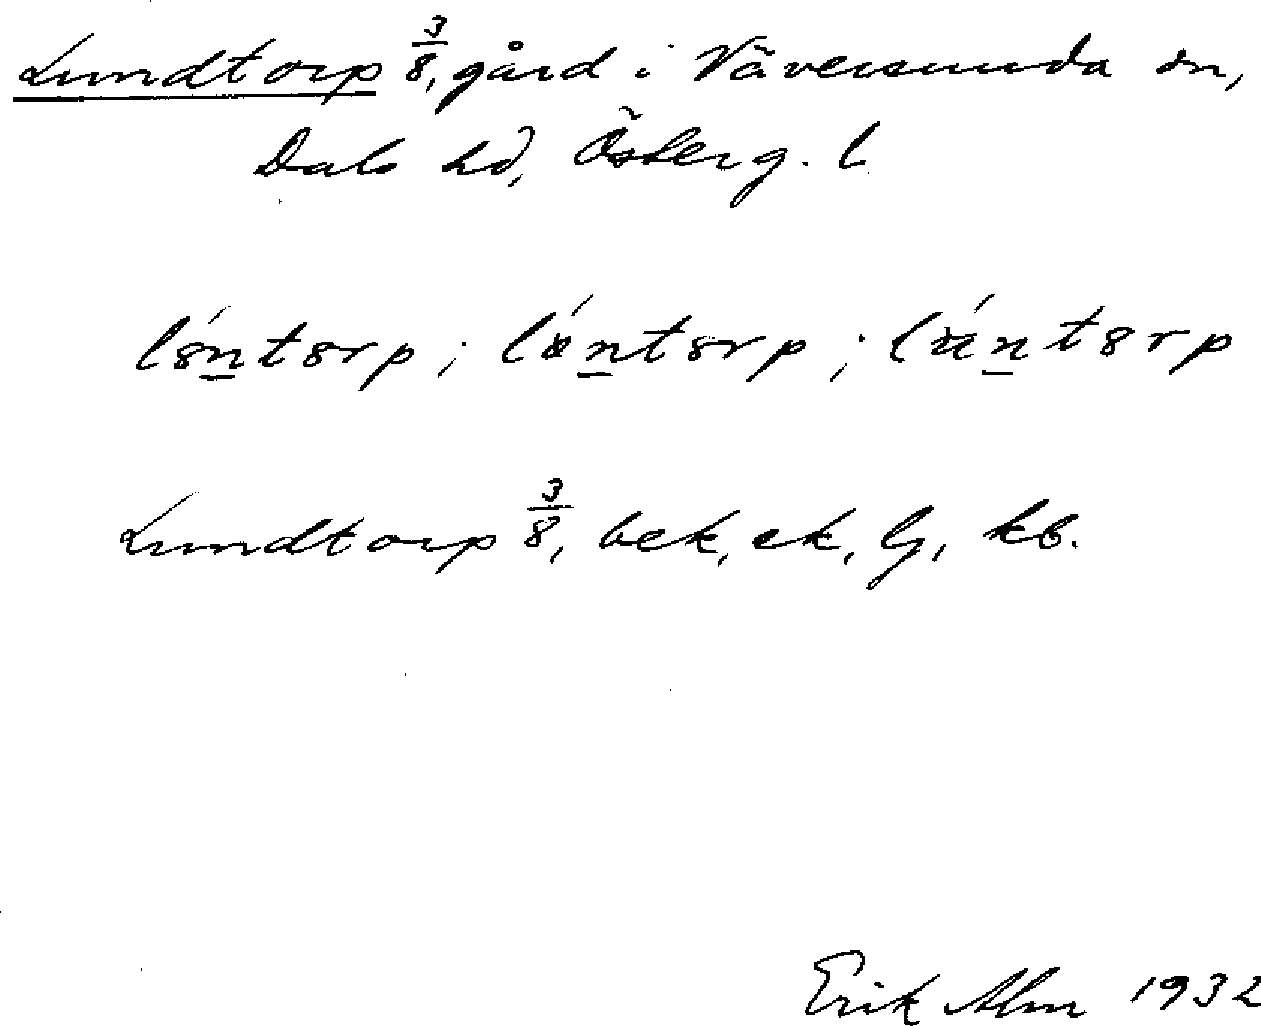 Lundtorp 3/8, gård i Väversunda sn,
Dals hd, Österg. l
lóntorp; lǿntorp; lǽntorp
Lundtorp 3/8, bek, ek, lj, kb.
Erik Alm 1932